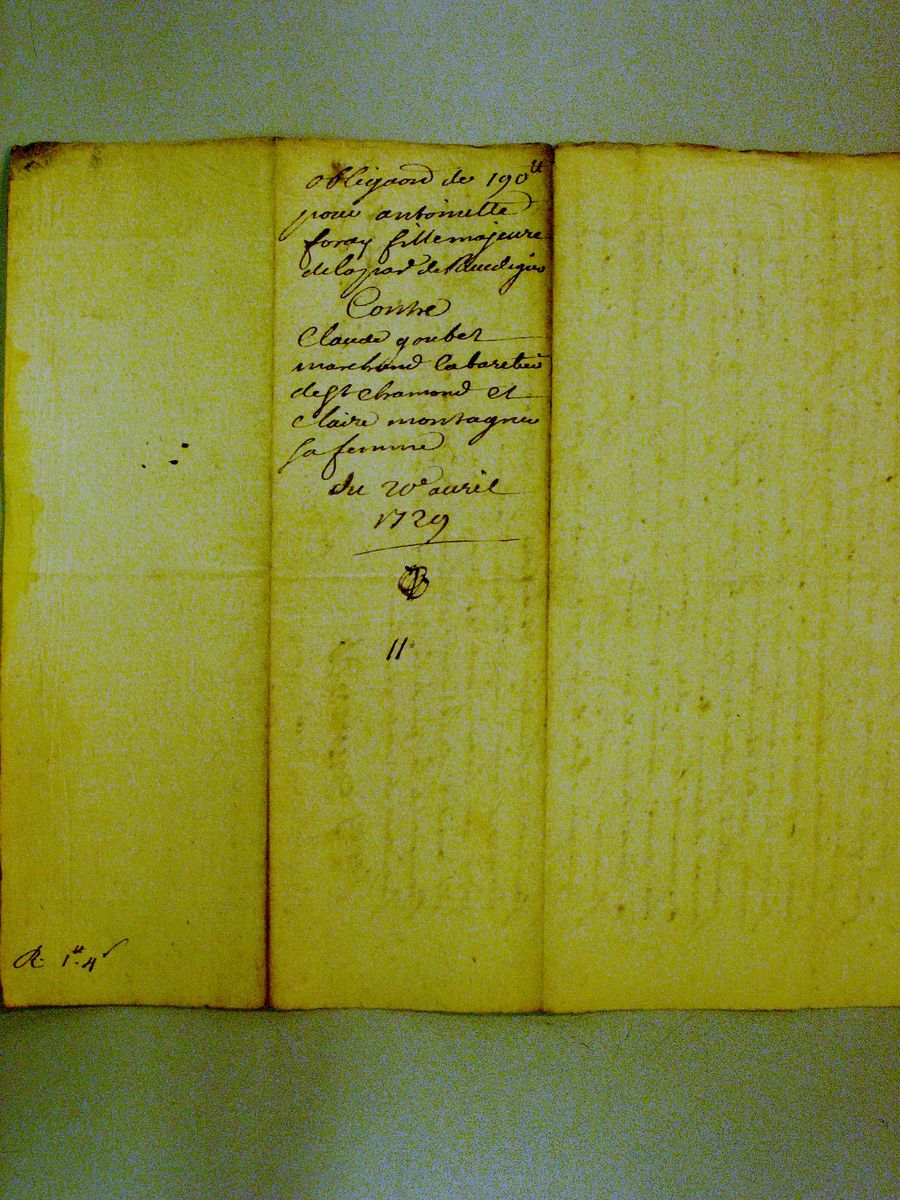 obligaon de 190tt
pour antoinette
foray fille majeure
de la par de
Contre
Claude goubet
marchand Cabaretier
de St chamond et
Claire montagnier
sa femme
du 20e avril
1729
11
R. 1tt 4s